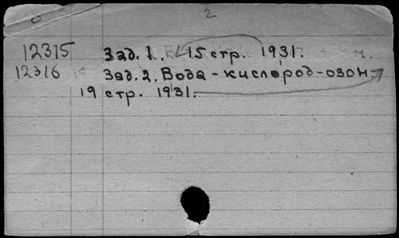 2
12315 Зад. 1. 15 стр. 1931.
12316 Зад. 2. Вода - кислород - озон.
19 стр. 1931.